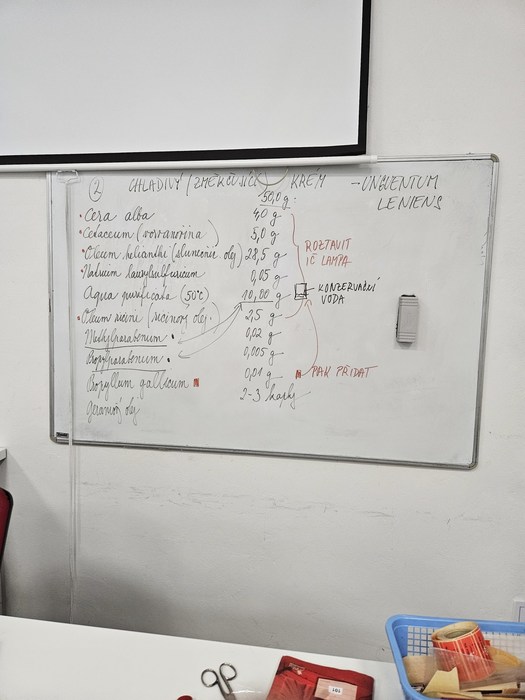 ② CHLADIVÝ / ZMĚKČUJÍCÍ KRÉM - UNGUENTUM LENIENS
50,0 g:
• Cera alba 4,0 g
• Cetaceum (vorvanovina) 5,0 g
• Oleum helianthi (slunečnic. olej) 28,5 g
• Natrium laurylsulfuricum 0,05 g
Aqua purificata (50°C) 10,00 g
• Oleum ricini (ricinový olej) 2,5 g
Methylparabenum • 0,02 g
Propylparabenum • 0,005 g
Propyllum gallicum 0,01 g
Geraniový olej 2-3 kapky
ROZTAVIT
IČ LAMPA
KONZERVAČNÍ
VODA
PAK PŘIDAT